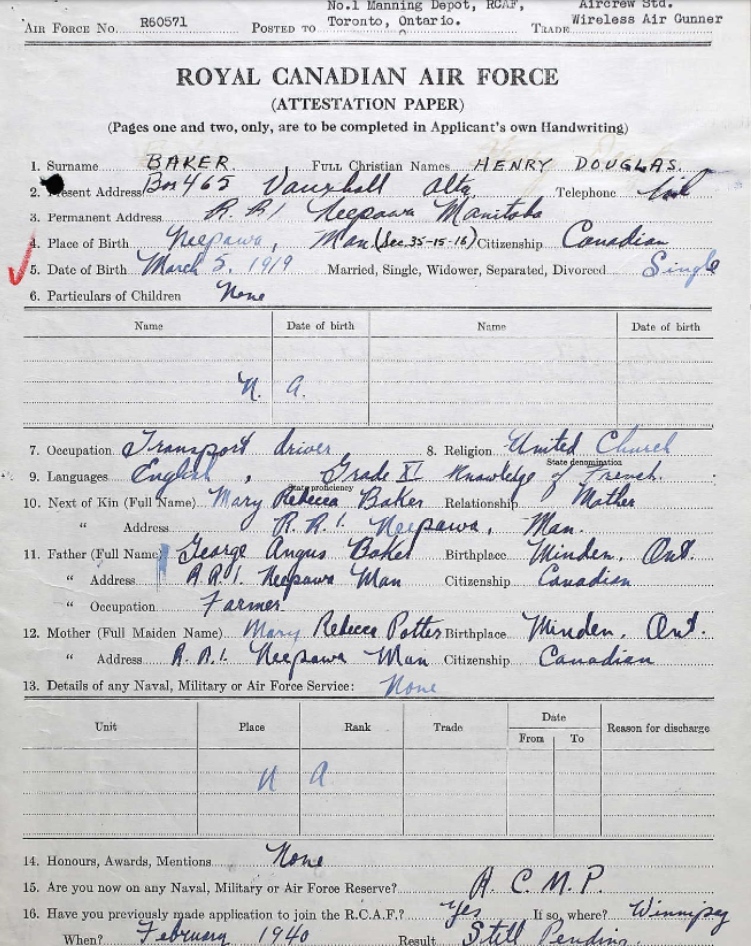 No.1 Manning Depot, RCAF, Aircrew Std.
AIR FORCE NO. R60571 POSTED TO Toronto, Ontario. TRADE Wireless Air Gunner
ROYAL CANADIAN AIR FORCE
(ATTESTATION PAPER)
(Pages one and two, only, are to be completed in Applicant's own Handwriting)
1. Surname BAKER FULL Christian Names HENRY DOUGLAS.
2. Present Address Box 465 Vauxhall Alta Telephone Nil
3. Permanent Address R.R.1 Neepawa Manitoba
4. Place of Birth Neepawa, Man (Sec. 35-15-16) Citizenship Canadian
5. Date of Birth March 5, 1919 Married, Single, Widower, Separated, Divorced Single
6. Particulars of Children None
Name Date of birth Name Date of birth
N. A.
7. Occupation Transport driver 8. Religion United Church
State denomination
9. Languages English, Grade XI Knowledge of French.
State proficiency
10. Next of Kin (Full Name) Mary Rebecca Baker Relationship Mother
" Address R.R.1. Neepawa, Man.
11. Father (Full Name) George Angus Baker Birthplace Minden, Ont.
" Address R.R.1. Neepawa Man Citizenship Canadian
" Occupation Farmer
12. Mother (Full Maiden Name) Mary Rebecca Potter Birthplace Minden, Ont.
" Address R.R.1. Neepawa Man Citizenship Canadian
13. Details of any Naval, Military or Air Force Service: None
Unit Place Rank Trade Date Reason for discharge
From To
N A
14. Honours, Awards, Mentions None
15. Are you now on any Naval, Military or Air Force Reserve? R.C.M.P.
16. Have you previously made application to join the R.C.A.F.? Yes If so, where? Winnipeg
When? February 1940 Result Still Pending.